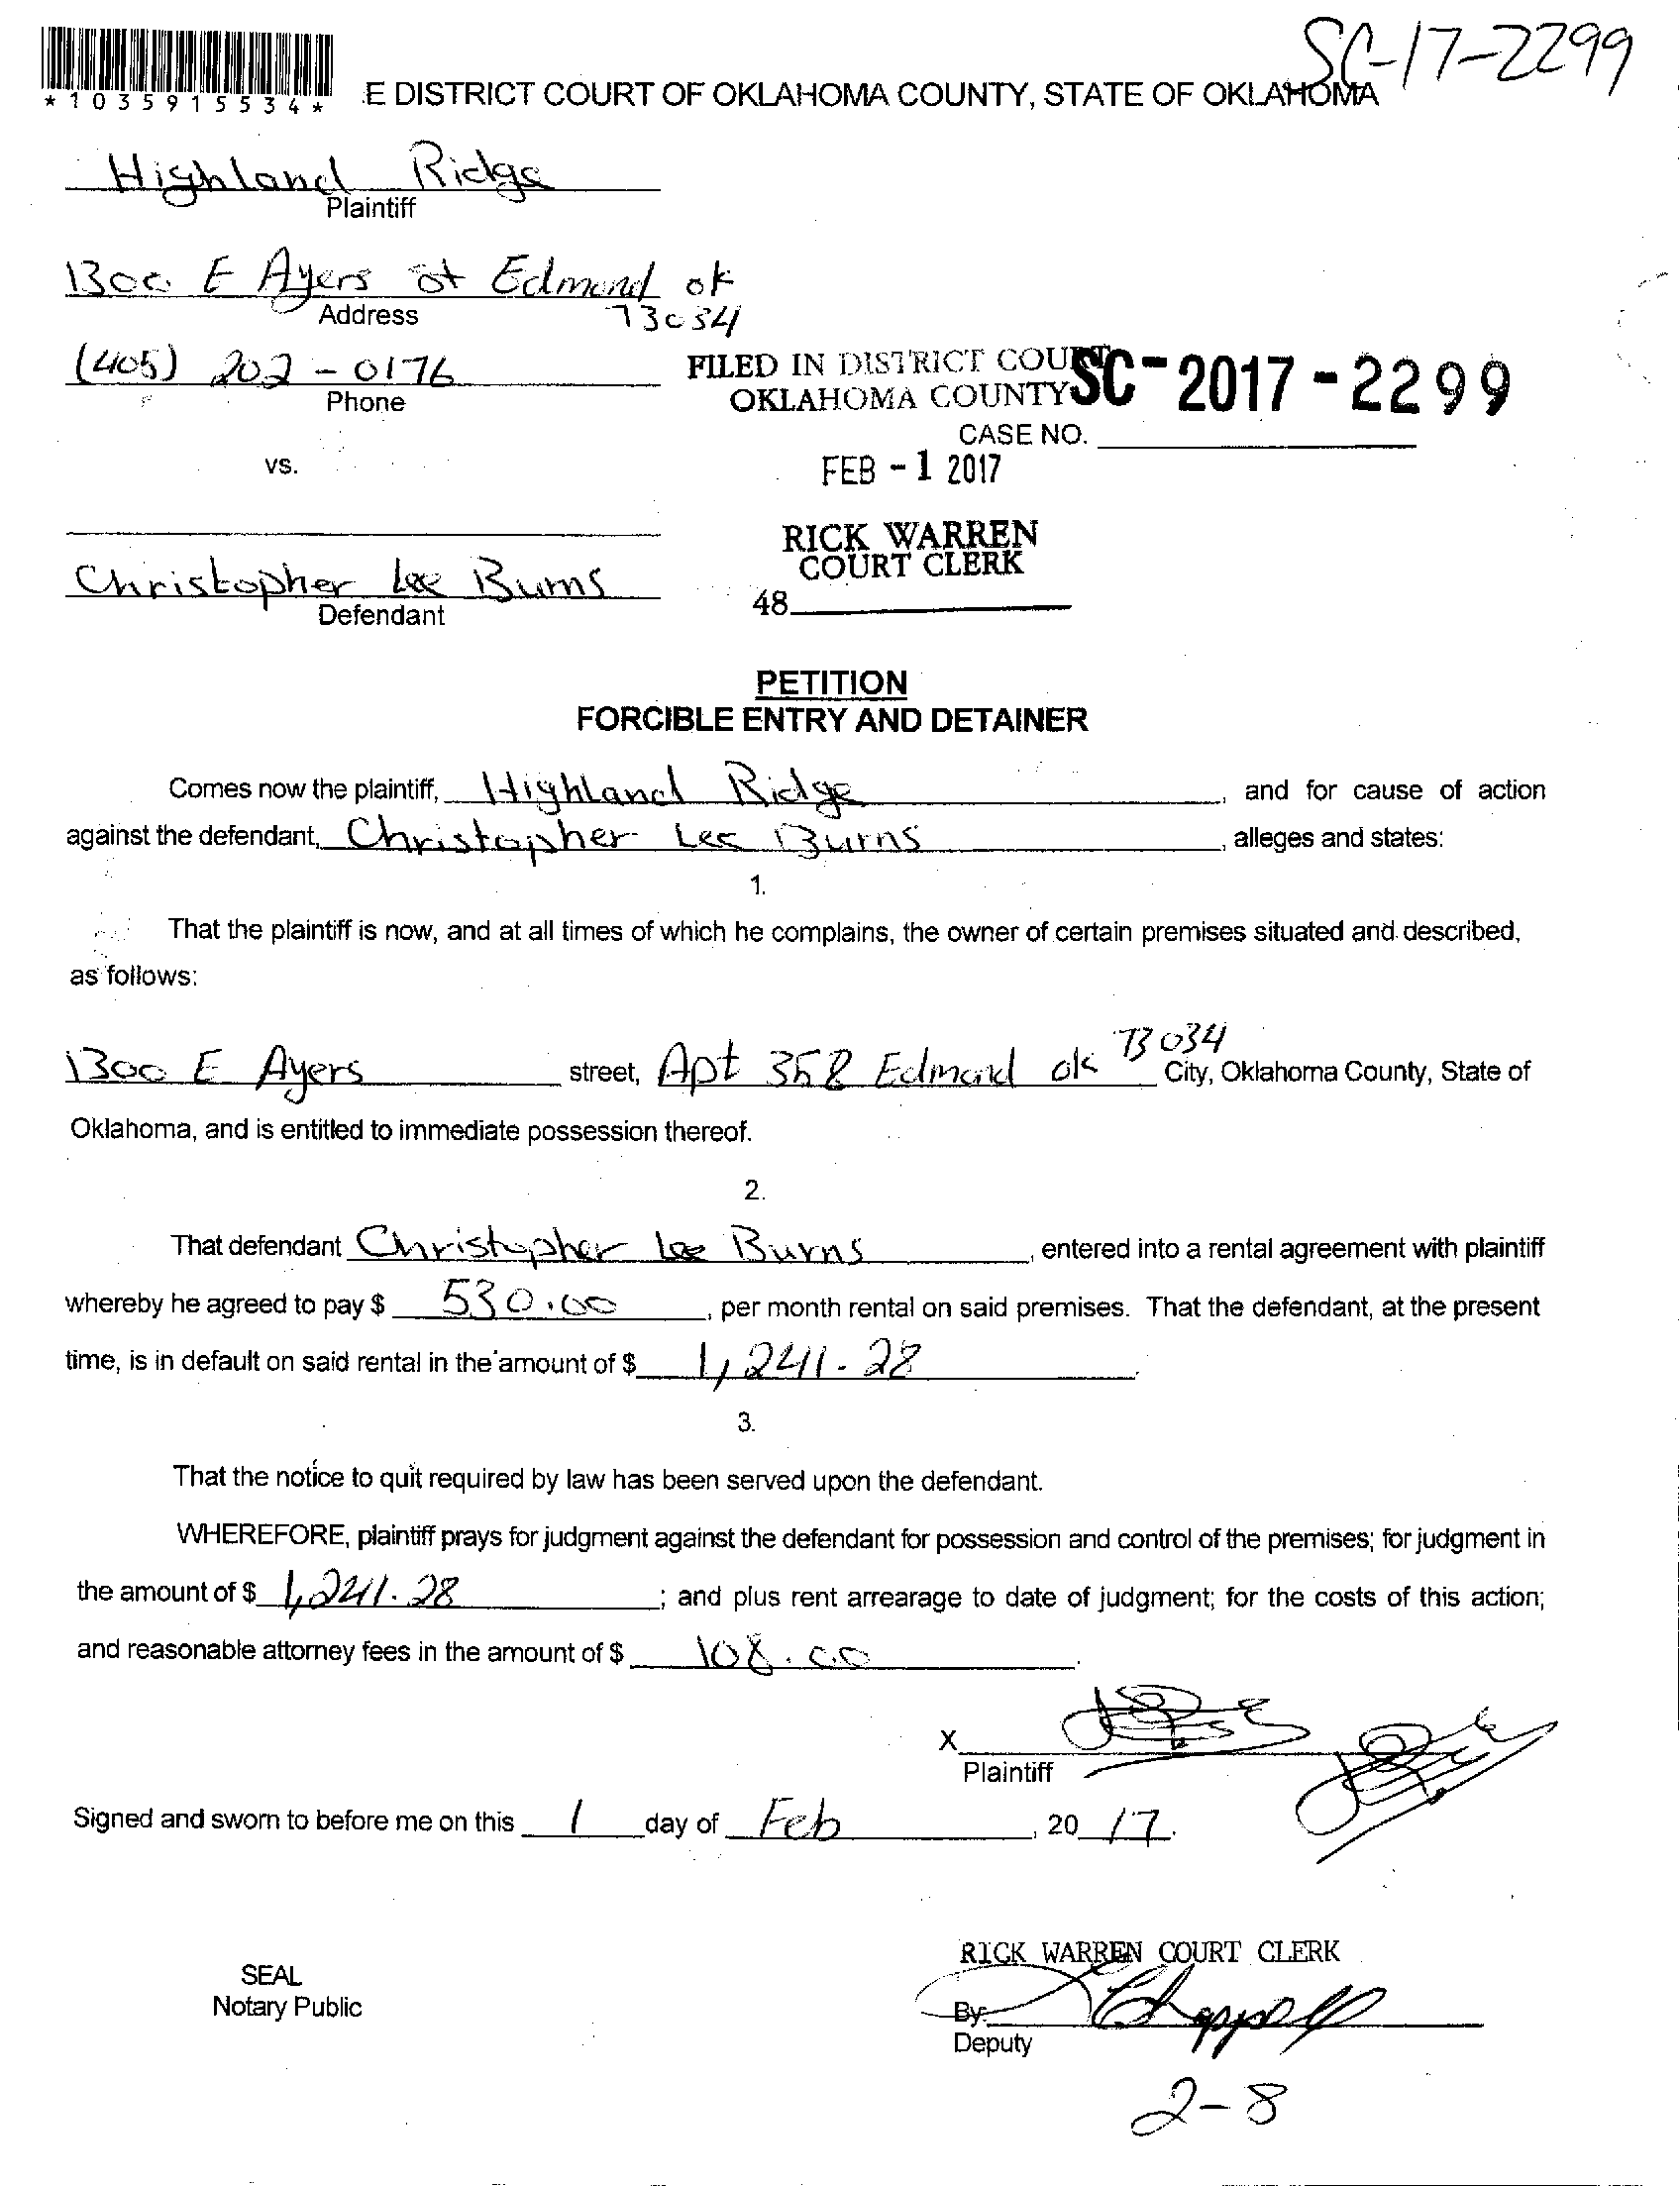 SC-17-2299
*1035915534*
E DISTRICT COURT OF OKLAHOMA COUNTY, STATE OF OKLAHOMA
Highland Ridge
Plaintiff
1300 E Ayers st Edmond ok
73034
Address
(405) 202-0176
Phone
FILED IN DISTRICT COURT
OKLAHOMA COUNTY
SC-2017-2299
CASE NO.
FEB -1 2017
vs.
RICK WARREN
COURT CLERK
48
Christopher Lee Burns
Defendant
PETITION
FORCIBLE ENTRY AND DETAINER
Comes now the plaintiff, Highland Ridge, and for cause of action
against the defendant, Christopher Lee Burns, alleges and states:
1.
That the plaintiff is now, and at all times of which he complains, the owner of certain premises situated and described,
as follows:
1300 E Ayers street, Apt 358 Edmond ok 73034 City, Oklahoma County, State of
Oklahoma, and is entitled to immediate possession thereof.
2.
That defendant Christopher Lee Burns, entered into a rental agreement with plaintiff
whereby he agreed to pay $ 530.00, per month rental on said premises. That the defendant, at the present
time, is in default on said rental in the amount of $ 1,241.28.
3.
That the notice to quit required by law has been served upon the defendant.
WHEREFORE, plaintiff prays for judgment against the defendant for possession and control of the premises; for judgment in
the amount of $ 1,241.28; and plus rent arrearage to date of judgment; for the costs of this action;
and reasonable attorney fees in the amount of $ 108.00.
X
Plaintiff
Signed and sworn to before me on this 1 day of Feb, 20 17.
RICK WARREN COURT CLERK
SEAL
Notary Public
By
Deputy
2-8